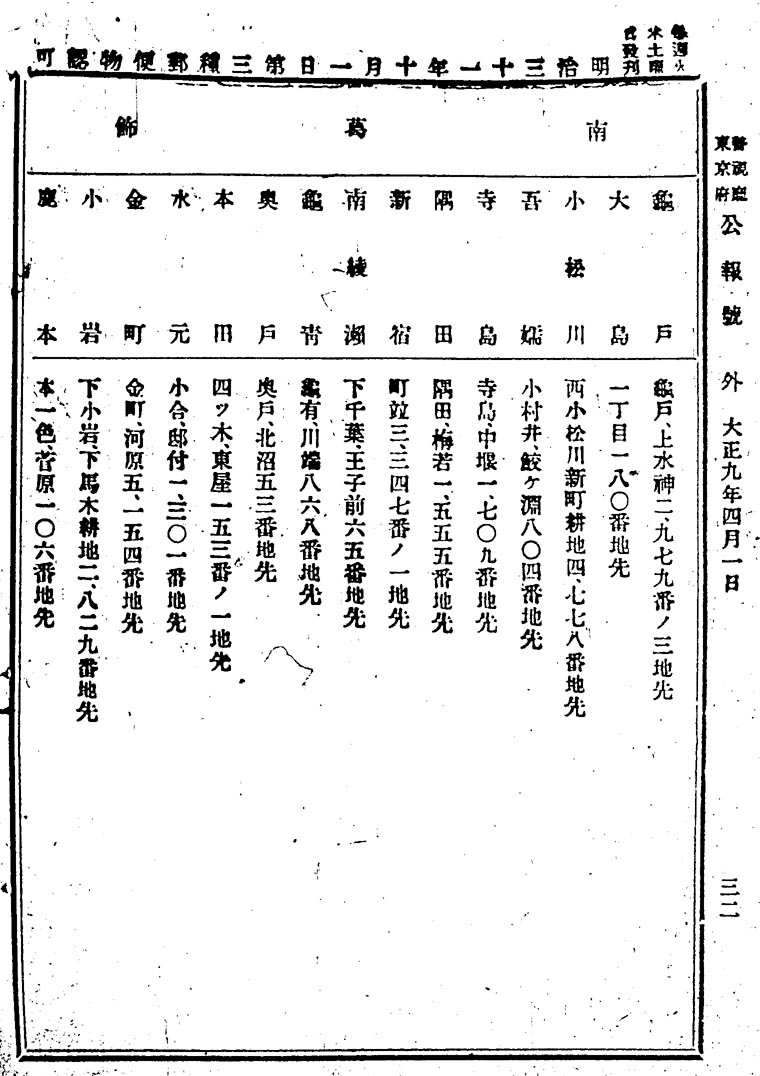 警視廳
東京府
公報號
外
大正九年四月一日
三二
毎週火
木土曜
日發刊
明治三十一年十月一日第三種郵便物認可
南葛飾
龜戸
龜戸、上水神二、九七九番ノ三地先
大島
一丁目一八〇番地先
小松川
西小松川新町耕地四、七七八番地先
吾嬬
小村井、鮫ケ淵八〇四番地先
寺島
寺島、中堰一、七〇九番地先
隅田
隅田、梅若一、五五五番地先
新宿
町竝三、三四七番ノ一地先
南綾瀬
下千葉、王子前六五番地先
龜靑
龜有、川端八六八番地先
奥戸
奥戸、北沼五三番地先
本田
四ツ木、東屋一五三番ノ一地先
水元
小合、邸付一、三〇一番地先
金町
金町、河原五、一五四番地先
小岩
下小岩、下馬木耕地二、八二九番地先
鹿本
本一色、菅原一〇六番地先